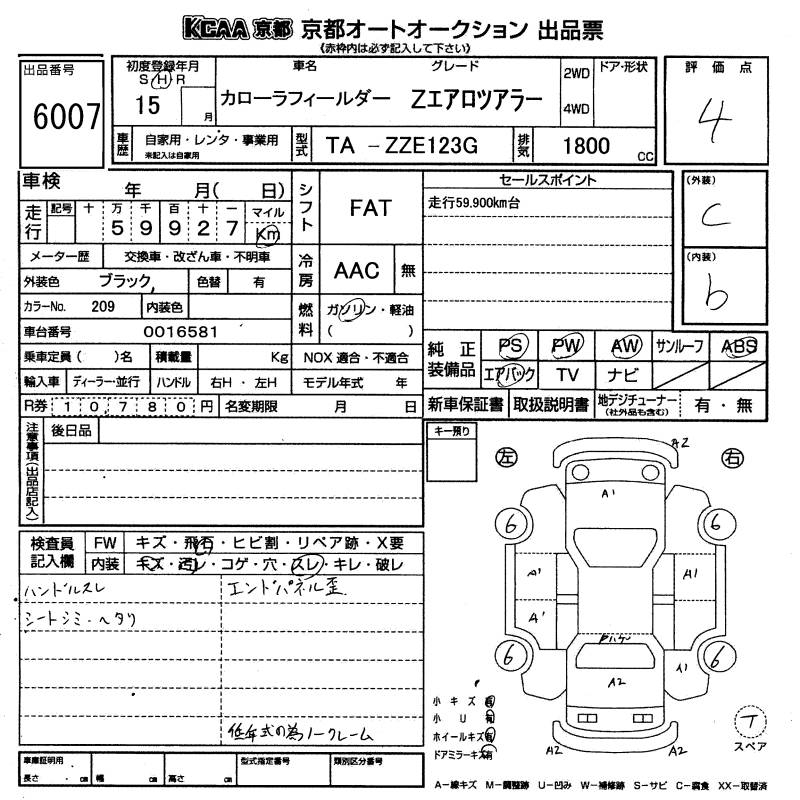 KCAA 京都 京都オートオークション 出品票
《赤枠内は必ず記入して下さい》
出品番号
6007
初度登録年月
S H R
15 月
車名 グレード
カローラフィールダー Zエアロツアラー
2WD
4WD
ドア・形状
評価点
4
車歴
自家用・レンタ・事業用
未記入は自家用
型式
TA －ZZE123G
排気
1800 cc
車検 年 月( 日)
走行
記号 十 万 千 百 十 一
5 9 9 2 7
マイル
Km
メーター歴 交換車・改ざん車・不明車
外装色 ブラック 色替 有
カラーNo. 209 内装色
車台番号 0016581
乗車定員( )名 積載量 Kg NOX 適合・不適合
輸入車 ディーラー・並行 ハンドル 右H ・ 左H モデル年式 年
R券 10,780 円 名変期限 月 日
シフト
FAT
冷房
AAC 無
燃料
ガソリン・軽油
( )
セールスポイント
走行59,900km台
(外装)
C
(内装)
b
純正装備品
PS PW AW サンルーフ ABS
エアバック TV ナビ
新車保証書 取扱説明書 地デジチューナー
(社外品も含む)
有 ・ 無
注意事項(出品店記入)
後日品
キー預り
左 右
検査員記入欄
FW キズ・飛石・ヒビ割・リペア跡・X要
内装 キズ・汚レ・コゲ・穴・スレ・キレ・破レ
ハンドルスレ
エンドパネル歪
シートシミ・ヘタリ
低年式の為ノークレーム
A2
A1
6 6
A1 A1
A1
6 6
A1
A2
A2 A2
小キズ 有
小U 有
ホイールキズ 有
ドアミラーキズ 有
T
スペア
車庫証明用
長さ . cm 幅 cm 高さ cm
型式指定番号
類別区分番号
A－線キズ M－調整跡 U－凹み W－補修跡 S－サビ C－腐食 XX－取替済